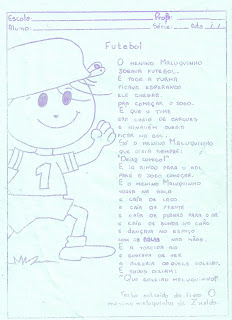 Escola: Profª:
Aluno: Série: Data / /
Futebol
O MENINO MALUQUINHO
JOGAVA FUTEBOL.
E TODA A TURMA
FICAVA ESPERANDO
ELE CHEGAR
PRA COMEÇAR O JOGO.
É QUE O TIME
ERA CHEIO DE CRAQUES
E NINGUÉM QUERIA
FICAR NO GOL.
SÓ O MENINO MALUQUINHO
QUE DIZIA SEMPRE:
"DEIXA COMIGO!"
E IA RINDO PARA O GOL
PARA O JOGO COMEÇAR.
E O MENINO MALUQUINHO
VOAVA NA BOLA
E CAÍA DE LADO
E CAÍA DE FRENTE
E CAÍA DE PERNAS PARA O AR
E CAÍA DE BUNDA NO CHÃO
E DANÇAVA NO ESPAÇO
COM A BOLA NAS MÃOS.
E A TORCIDA RIA
E GOSTAVA DE VER
A ALEGRIA DAQUELE GOLEIRO.
E TODOS DIZIAM:
"QUE GOLEIRO MALUQUINHO!"
Texto extraído do livro O
menino maluquinho de Ziraldo
1